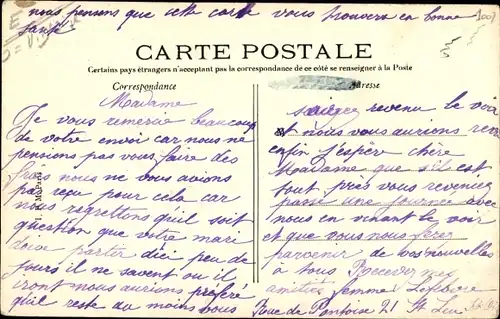 nous pensons que cette carte vous trouvera en bonne
santé
CARTE POSTALE
Certains pays étrangers n'acceptant pas la correspondance de ce côté se renseigner à la Poste
Correspondance
Adresse
Madame
Je vous remercie beaucoup
de votre envoi car nous ne
pensions pas vous faire des
frais nous ne vous avions
pas reçu pour cela car
nous regrettons qu'il soit
question que votre mari
doive partir dici peu de
jours il ne savent ou il
iront nous aurions préféré
qu'il reste du moins vous
revenu le voir
et nous vous aurions
enfin j'espère chère
Madame que s'il est
tout près vous reviendrez
passé une journée avec
nous en vinant le voir
et que vous nous ferez
parvenir de vos nouvelles
à tous Recevez mes
amitiés femme
Rue de Pontoise 21 St Leu